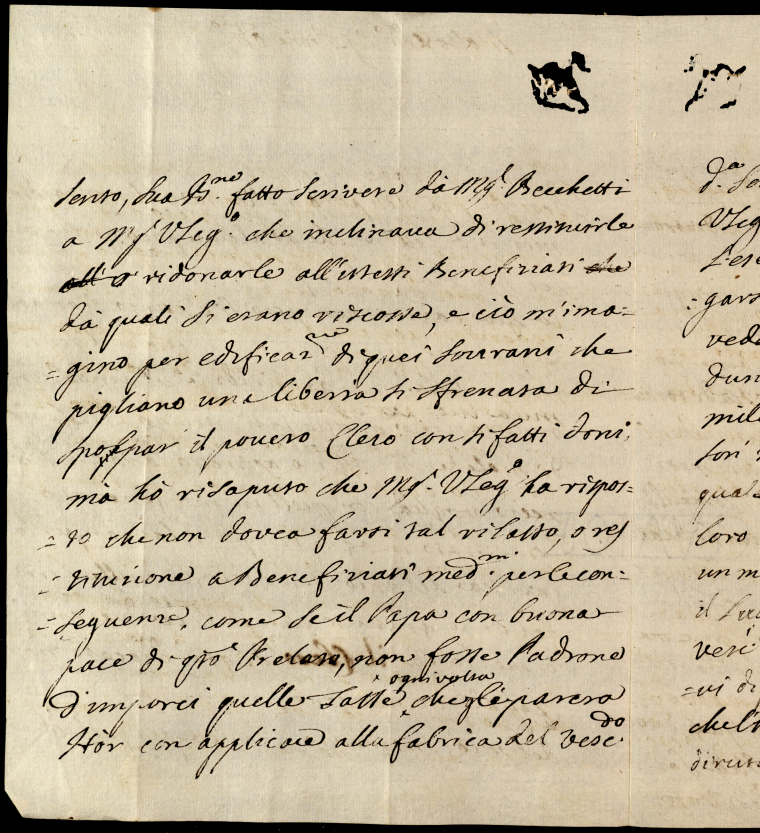 sento, Sua B.ne fatto scrivere dà Mg.r Becchetti
a M.r V Leg.o che inclinava di restituirle
all' o ridonarle all'istessi Benefiziati che
dà quali si erano riscosse, e ciò m'ima=
=gino per edificaz.ne di quei sovrani che
pigliano una libertà sì sfrenata di
il povero Clero con sì fatti doni,
mà hò risaputo che Mg.r V Leg.o ha rispos=
=to che non dovea farsi tal rilasso, o res
=tituzione a Benefiziati med.mi per le con=
=seguenze, come se il Papa con buona
pace di q̃to Prelato, non fosse Padrone
d'imporci quelle Tasse ogni volta che gle parerà
Hòr con applicare alla fabrica del Vesc.do
d.a
V Leg
=gars
veda
dun
mil
sori
qual
loro
un m
il
vesc
=vi di
che l'
dirut